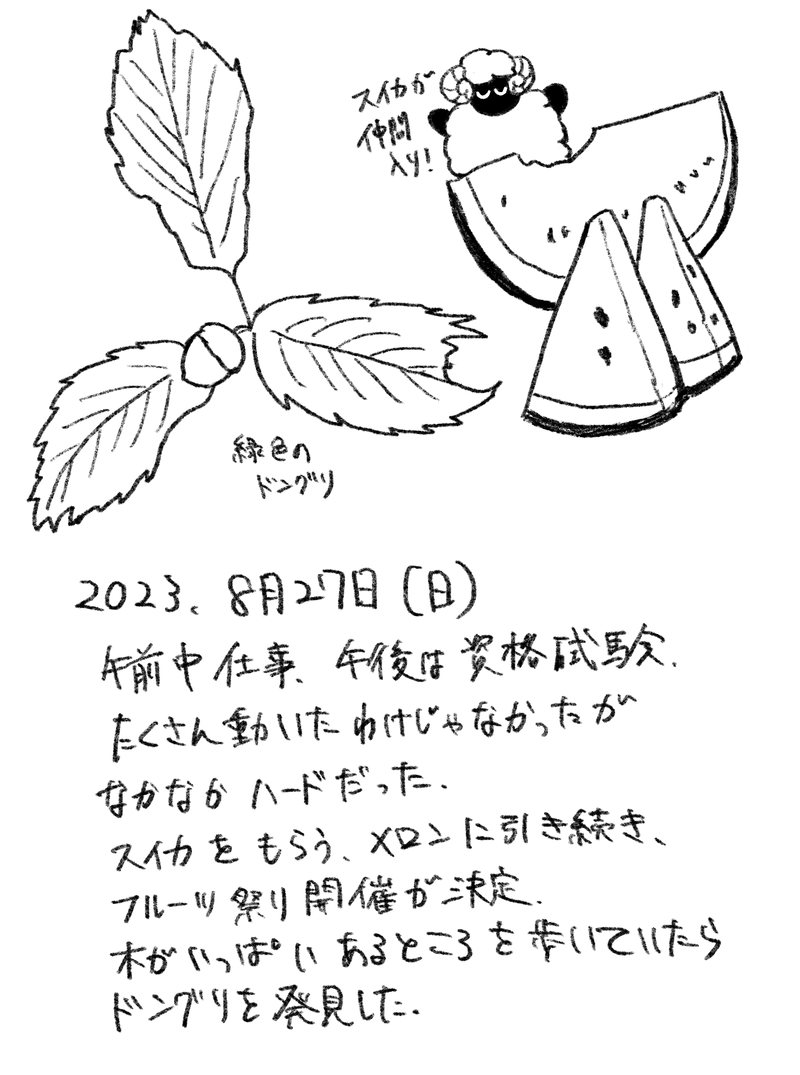 スイカが
仲間
入り!
緑色の
ドングリ
2023. 8月27日(日)
午前中仕事、午後は資格試験.
たくさん動いたわけじゃなかったが
なかなかハードだった.
スイカをもらう、メロンに引き続き、
フルーツ祭り開催が決定.
木がいっぱいあるところを歩いていたら
ドングリを発見した.